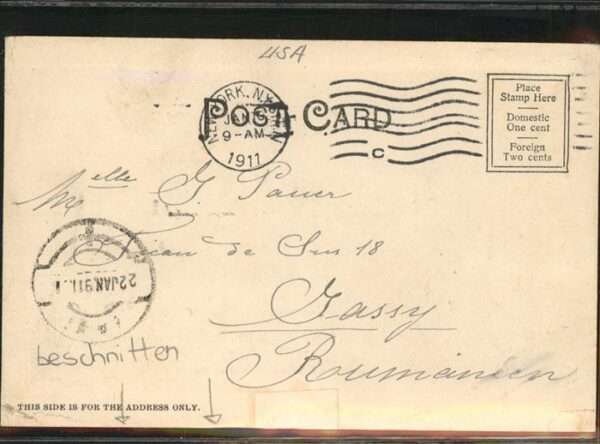 USA
POST CARD
NEW YORK, N.Y.
9-AM
1911
C
Place
Stamp Here
Domestic
One cent
Foreign
Two cents
Melle G. Pauer
de Sus 18
22 JAN. 911
Jassy
Roumanien
beschnitten
THIS SIDE IS FOR THE ADDRESS ONLY.